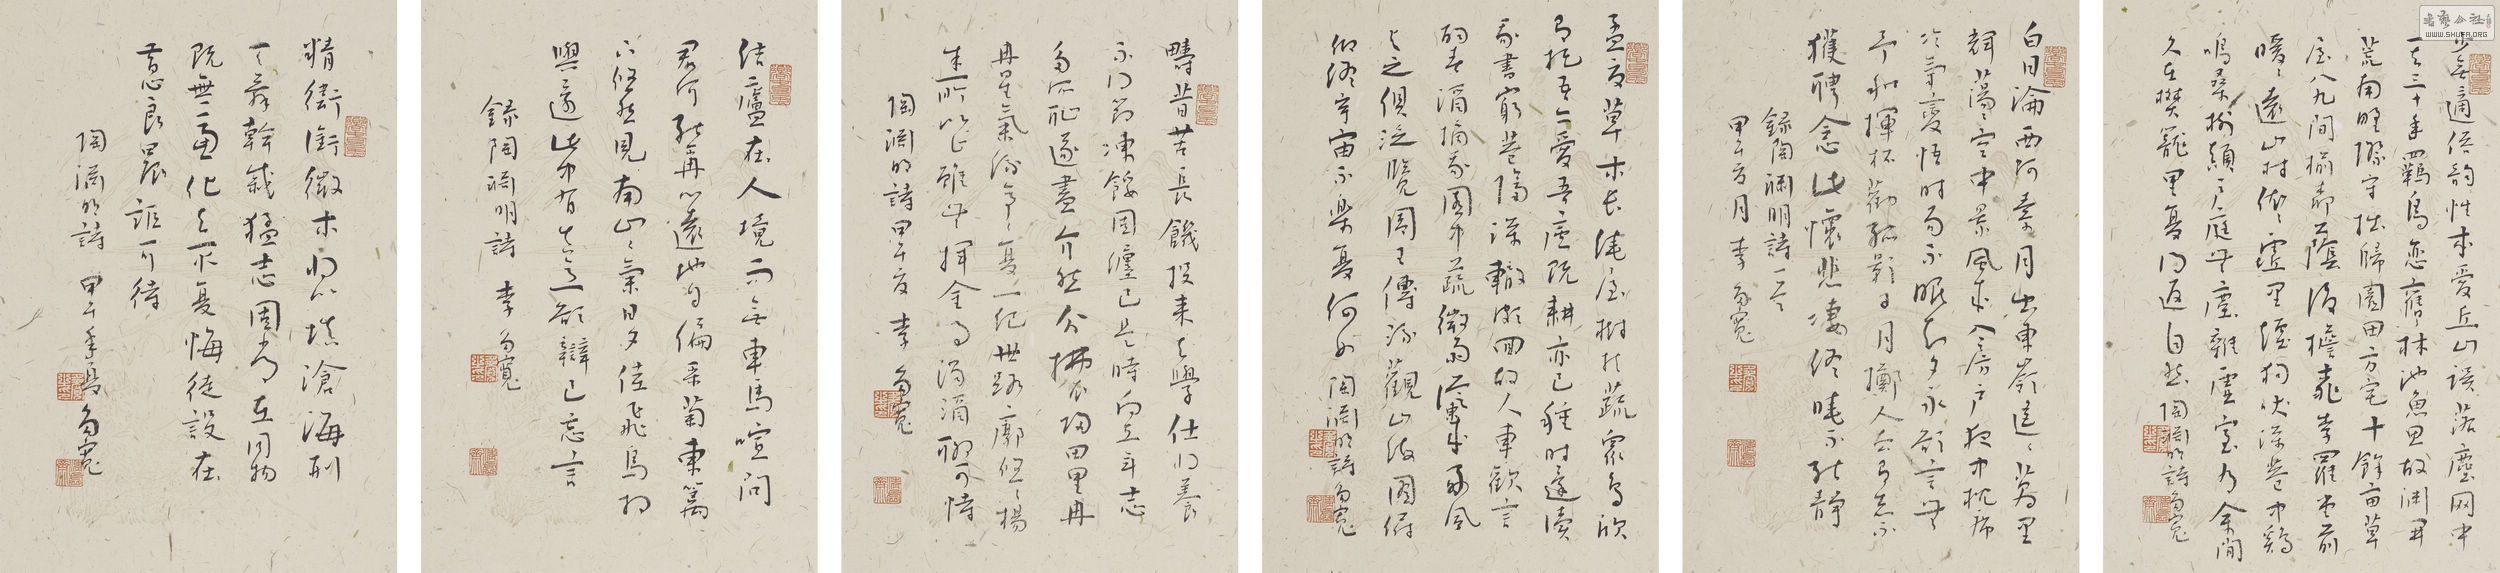 少無適俗韵性本愛丘山誤落塵网中
一去三十年羈鳥恋舊林池魚思故渊开
荒南野際守拙歸園田方宅十餘亩草
屋八九間榆柳蔭後檐桃李羅堂前
暧々遠山村依々墟里煙狗吠深巷中鷄
鳴桑树颠户庭無塵雜虚室有余閒
久在樊籠里复得返自然陶渊明詩 寬
白日淪西阿素月出東岺遥々萬里
輝蕩々空中景風来入房户夜中枕席
冷氣變悟时易不眠知夕永欲言無
予和揮杯勸孤影日月擲人去有志不
獲聘念此懷悲凄終曉不能静
録陶渊明詩一首
甲午夏月 李 寬
孟夏草木长绕屋树扶疏眾鸟欣
有托吾亦愛吾廬既耕亦已種时還读
我書窮巷隔深轍頗回故人車歡言
酌春酒摘我園中蔬微雨從東来好風
与之俱泛覽周王傳流觀山海图俯
仰終宇宙不樂复何如 陶渊明詩 寬
疇昔苦長饑投耒去學仕将養
不得節凍餒固纏己是時向立年志
多所耻遂盡介然分拂衣归田里冉
冉星氣流亭々复一纪世路廓悠々楊
朱所以止雖無揮金事濁酒聊可恃
陶渊明詩甲午夏 李 寬
结廬在人境而無車馬喧問
君何能爾心遠地自偏采菊東篱
下悠然見南山々氣日夕佳飛鳥相
與還此中有真意欲辯已忘言
録陶渊明詩 李 寬
精衛銜微木将以填滄海刑
天舞幹戚猛志固常在同物
既無慮化去不复悔徒設在
昔志良晨詎可待
陶渊明詩 甲午年夏 寬
WWW.SHUFA.ORG